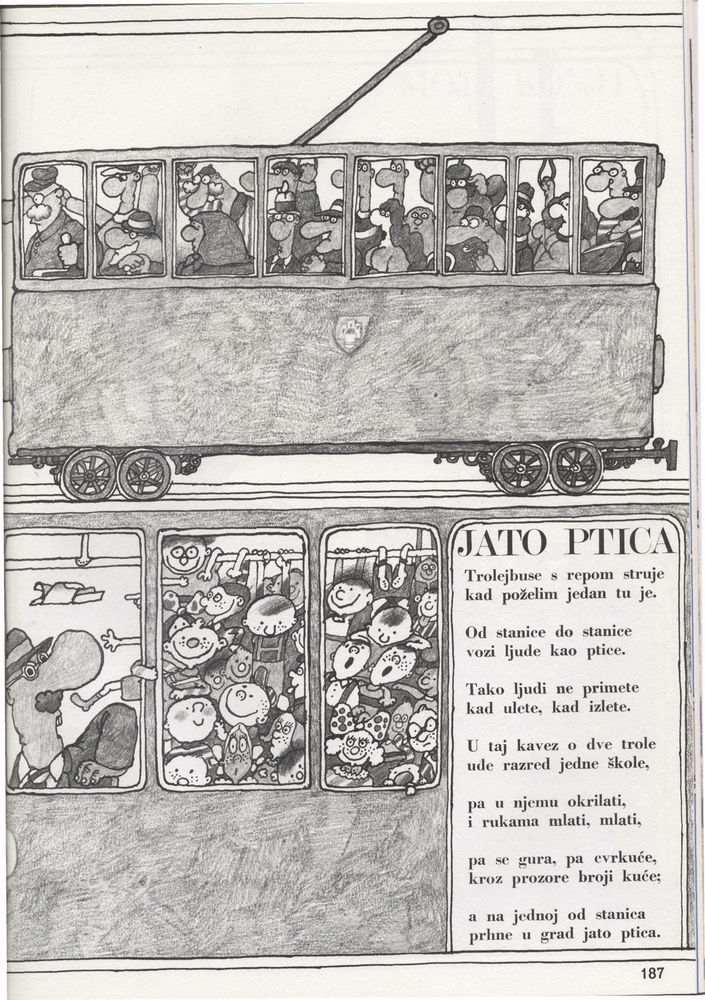 JATO PTICA
Trolejbuse s repom struje
kad poželim jedan tu je.
Od stanice do stanice
vozi ljude kao ptice.
Tako ljudi ne primete
kad ulete, kad izlete.
U taj kavez o dve trole
uđe razred jedne škole,
pa u njemu okrilati,
i rukama mlati, mlati,
pa se gura, pa cvrkuće,
kroz prozore broji kuće;
a na jednoj od stanica
prhne u grad jato ptica.
187